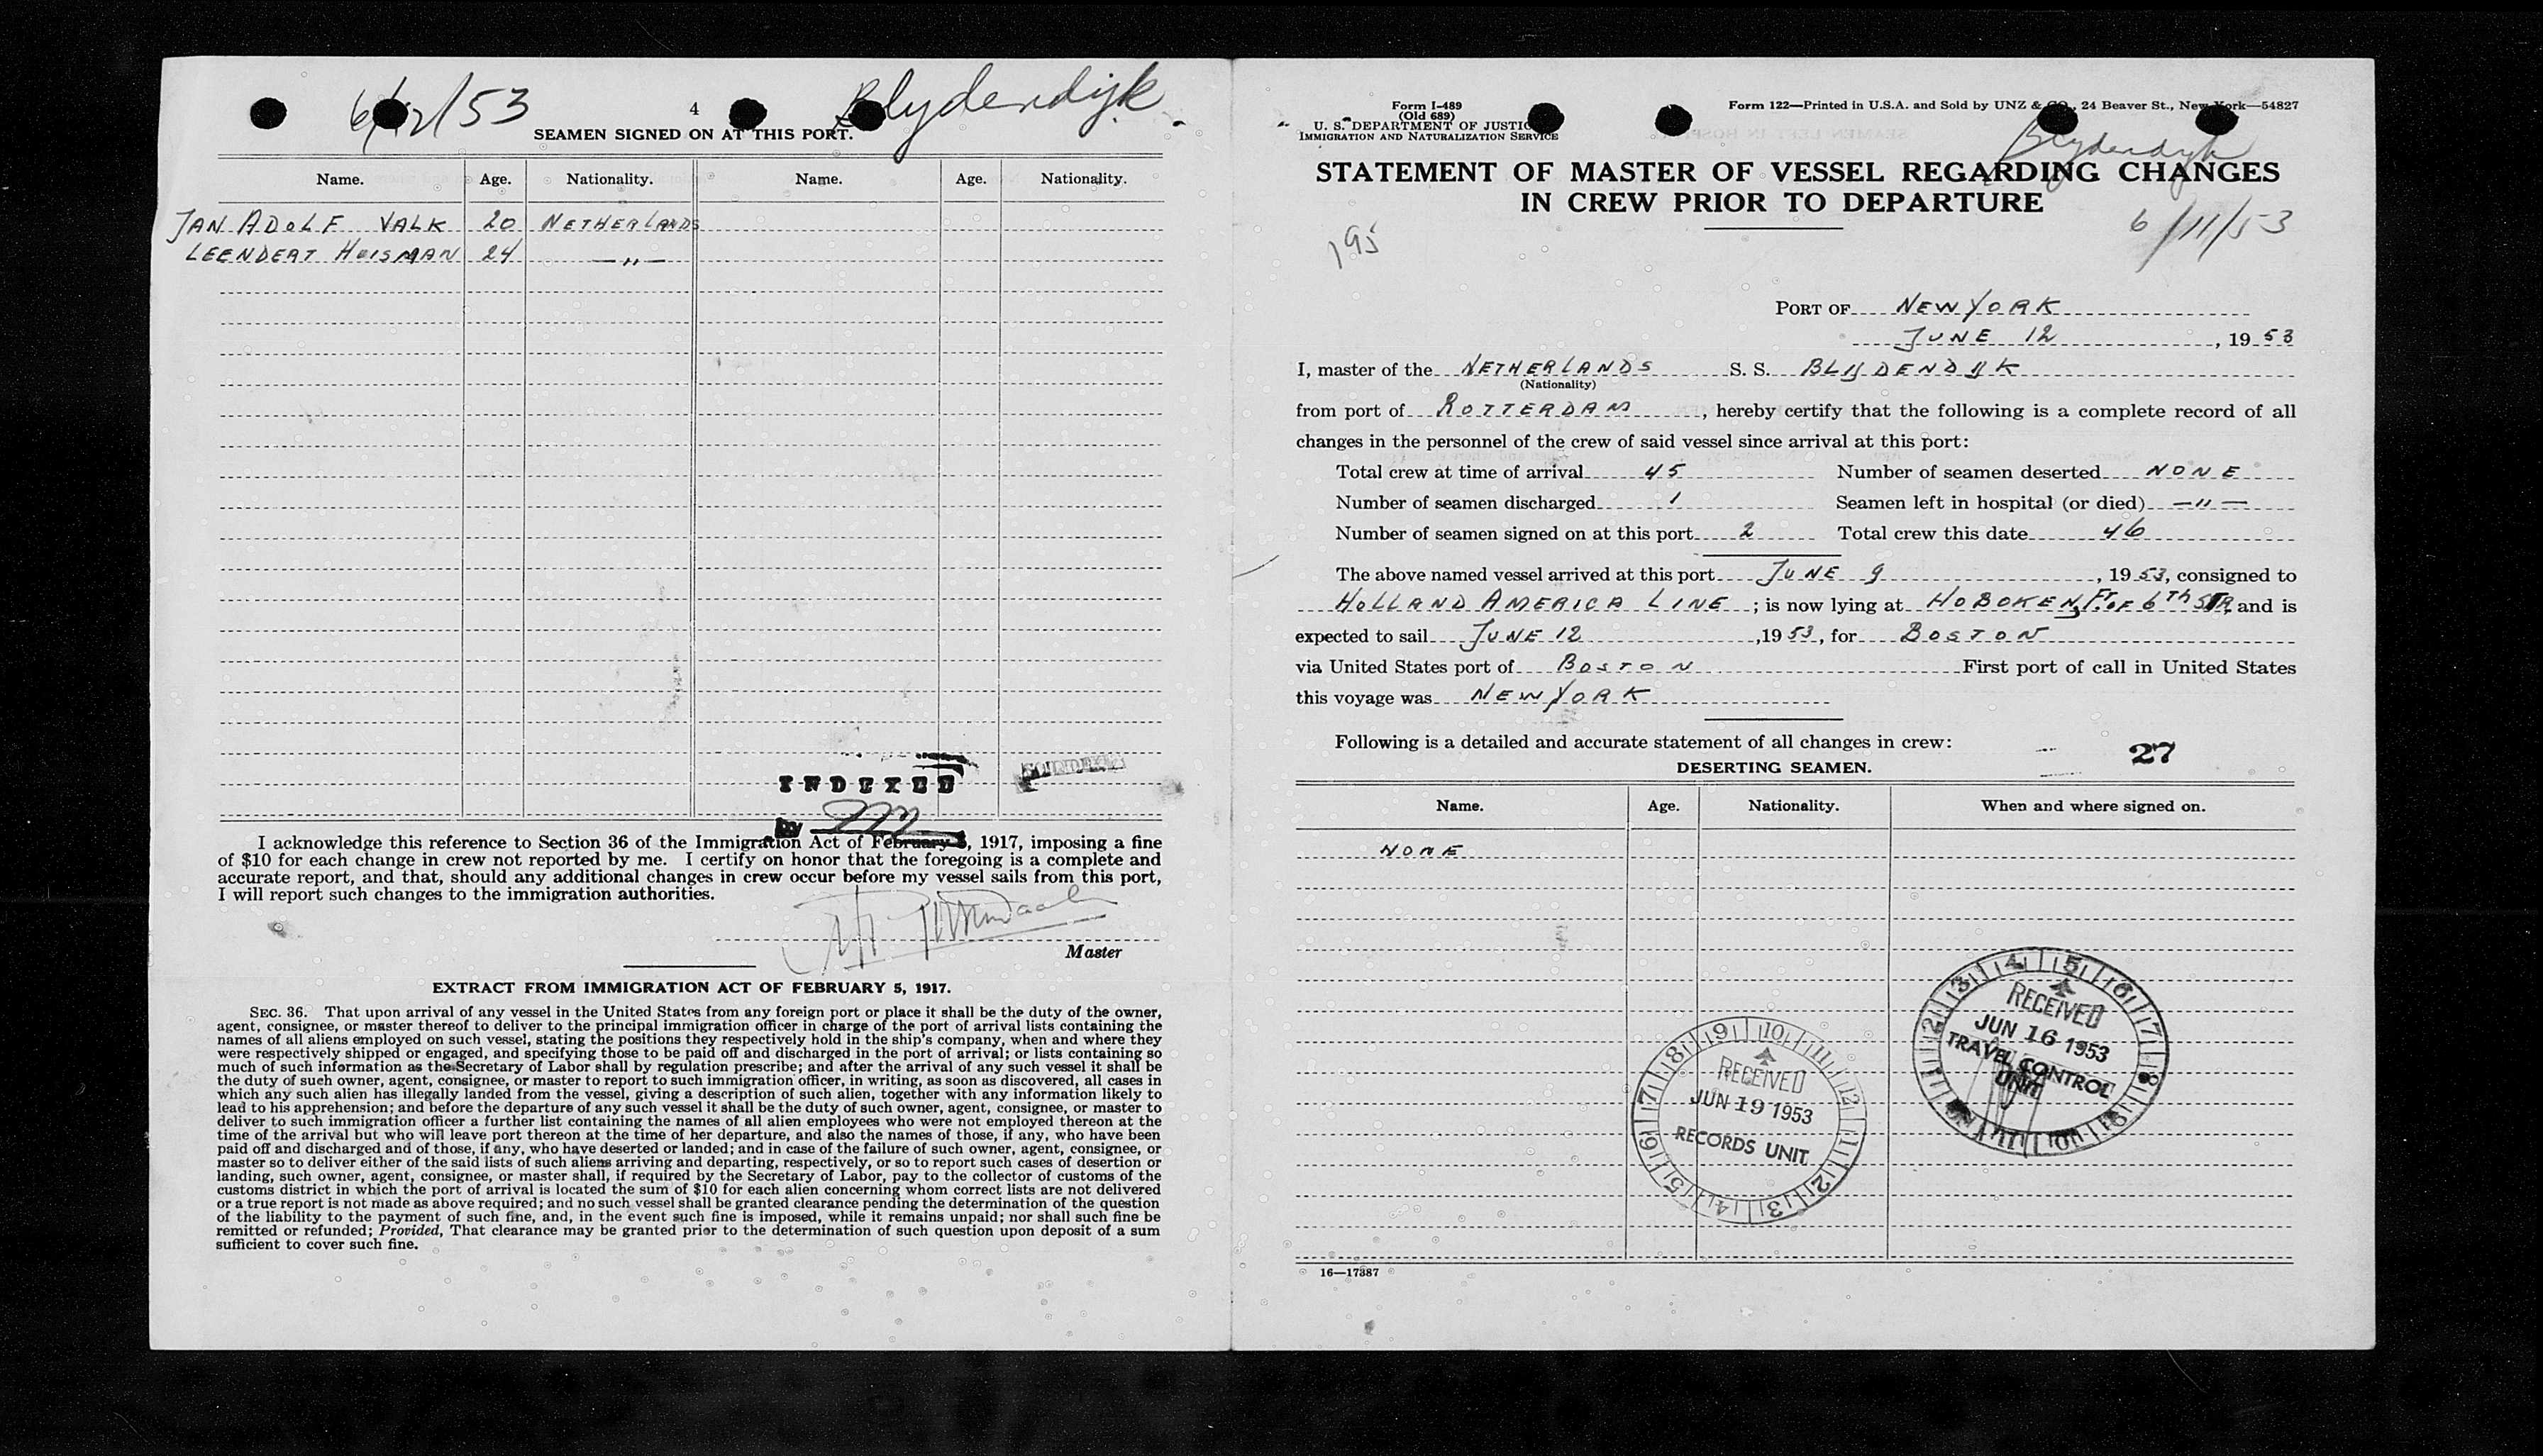 6/12/53
4
Blydendijk
SEAMEN SIGNED ON AT THIS PORT.
Name. Age. Nationality. Name. Age. Nationality.
JAN ADOLF VALK 20 NETHERLANDS
LEENDERT HUISMAN 24 —〃—
INDEXED
I acknowledge this reference to Section 36 of the Immigration Act of February 5, 1917, imposing a fine
of $10 for each change in crew not reported by me. I certify on honor that the foregoing is a complete and
accurate report, and that, should any additional changes in crew occur before my vessel sails from this port,
I will report such changes to the immigration authorities.
Master
EXTRACT FROM IMMIGRATION ACT OF FEBRUARY 5, 1917.
SEC. 36. That upon arrival of any vessel in the United States from any foreign port or place it shall be the duty of the owner,
agent, consignee, or master thereof to deliver to the principal immigration officer in charge of the port of arrival lists containing the
names of all aliens employed on such vessel, stating the positions they respectively hold in the ship's company, when and where they
were respectively shipped or engaged, and specifying those to be paid off and discharged in the port of arrival; or lists containing so
much of such information as the Secretary of Labor shall by regulation prescribe; and after the arrival of any such vessel it shall be
the duty of such owner, agent, consignee, or master to report to such immigration officer, in writing, as soon as discovered, all cases in
which any such alien has illegally landed from the vessel, giving a description of such alien, together with any information likely to
lead to his apprehension; and before the departure of any such vessel it shall be the duty of such owner, agent, consignee, or master to
deliver to such immigration officer a further list containing the names of all alien employees who were not employed thereon at the
time of the arrival but who will leave port thereon at the time of her departure, and also the names of those, if any, who have been
paid off and discharged and of those, if any, who have deserted or landed; and in case of the failure of such owner, agent, consignee, or
master so to deliver either of the said lists of such aliens arriving and departing, respectively, or so to report such cases of desertion or
landing, such owner, agent, consignee, or master shall, if required by the Secretary of Labor, pay to the collector of customs of the
customs district in which the port of arrival is located the sum of $10 for each alien concerning whom correct lists are not delivered
or a true report is not made as above required; and no such vessel shall be granted clearance pending the determination of the question
of the liability to the payment of such fine, and, in the event such fine is imposed, while it remains unpaid; nor shall such fine be
remitted or refunded; Provided, That clearance may be granted prior to the determination of such question upon deposit of a sum
sufficient to cover such fine.
Form I-489
(Old 689)
U. S. DEPARTMENT OF JUSTICE
IMMIGRATION AND NATURALIZATION SERVICE
Form 122—Printed in U.S.A. and Sold by UNZ & CO., 24 Beaver St., New York—54827
Blydendyk
STATEMENT OF MASTER OF VESSEL REGARDING CHANGES
IN CREW PRIOR TO DEPARTURE
195
6/11/53
PORT OF NEW YORK
JUNE 12, 1953
I, master of the NETHERLANDS S. S. BLIJDENDIJK
(Nationality)
from port of ROTTERDAM, hereby certify that the following is a complete record of all
changes in the personnel of the crew of said vessel since arrival at this port:
Total crew at time of arrival 45 Number of seamen deserted NONE
Number of seamen discharged 1 Seamen left in hospital (or died) —〃—
Number of seamen signed on at this port 2 Total crew this date 46
The above named vessel arrived at this port JUNE 9, 1953, consigned to
HOLLAND AMERICA LINE; is now lying at HOBOKEN, FT. OF 6TH STR, and is
expected to sail JUNE 12, 1953, for BOSTON
via United States port of BOSTON First port of call in United States
this voyage was NEW YORK
Following is a detailed and accurate statement of all changes in crew:
27
DESERTING SEAMEN.
Name. Age. Nationality. When and where signed on.
NONE
RECEIVED
JUN 16 1953
TRAVEL CONTROL
UNIT
RECEIVED
JUN 19 1953
RECORDS UNIT
16—17387